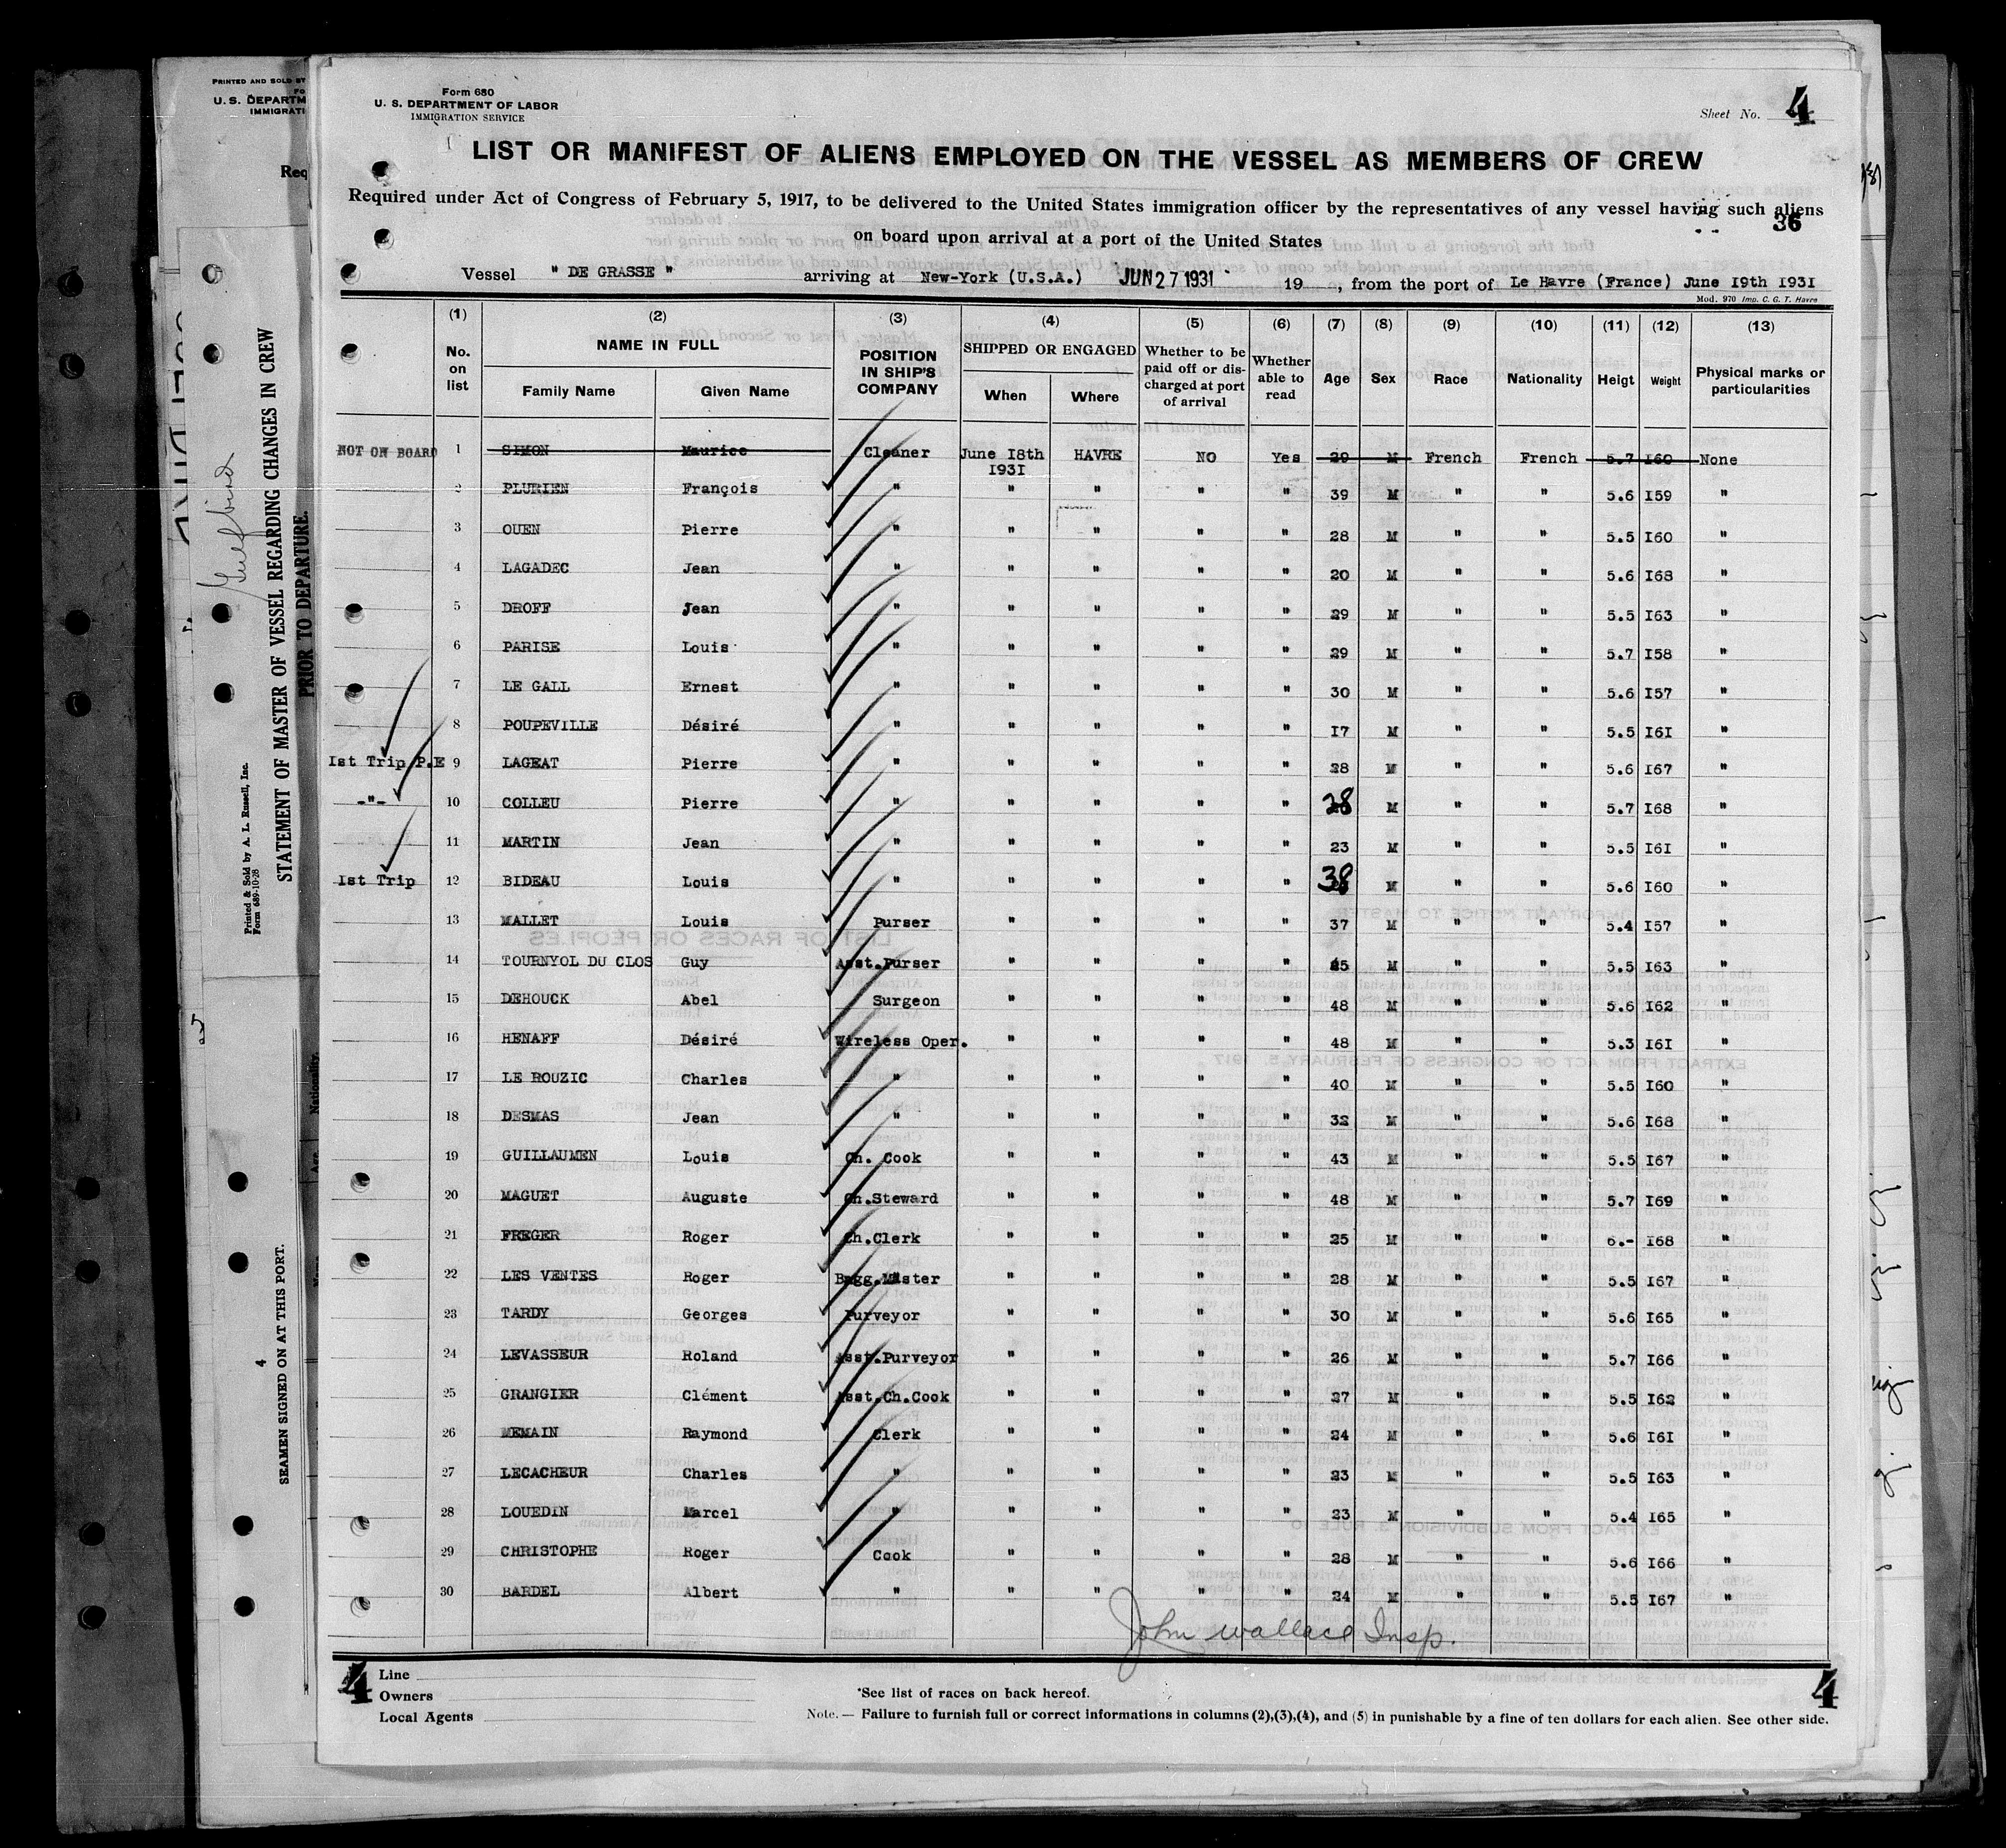 PRINTED AND SOLD BY
U. S. DEPARTM
IMMIGRATI
Req
Form 680
U. S. DEPARTMENT OF LABOR
IMMIGRATION SERVICE
Sheet No. 4
LIST OR MANIFEST OF ALIENS EMPLOYED ON THE VESSEL AS MEMBERS OF CREW
Required under Act of Congress of February 5, 1917, to be delivered to the United States immigration officer by the representatives of any vessel having such aliens
on board upon arrival at a port of the United States
36
Vessel " DE GRASSE " arriving at New-York (U.S.A.) JUN 27 1931 19 , from the port of Le Havre (France) June I9th I93I
Mod. 970 Imp. C. G. T. Havre
(1) (2) (3) (4) (5) (6) (7) (8) (9) (10) (11) (12) (13)
No. on list NAME IN FULL Family Name Given Name POSITION IN SHIP'S COMPANY SHIPPED OR ENGAGED When Where Whether to be paid off or discharged at port of arrival Whether able to read Age Sex Race Nationality Heigt Weight Physical marks or particularities
NOT ON BOARD 1 SIMON Maurice Cleaner June I8th I93I HAVRE NO Yes 29 M French French 5.7 I60 None
2 PLURIEN François " " " " " 39 M " " 5.6 I59 "
3 OUEN Pierre " " " " " 28 M " " 5.5 I60 "
4 LAGADEC Jean " " " " " 20 M " " 5.6 I68 "
5 DROFF Jean " " " " " 29 M " " 5.5 I63 "
6 PARISE Louis " " " " " 29 M " " 5.7 I58 "
7 LE GALL Ernest " " " " " 30 M " " 5.6 I57 "
8 POUPEVILLE Désiré " " " " " I7 M " " 5.5 I6I "
Ist Trip P.E 9 LAGEAT Pierre " " " " " 28 M " " 5.6 I67 "
-"- 10 COLLEU Pierre " " " " " 28 M " " 5.7 I68 "
11 MARTIN Jean " " " " " 23 M " " 5.5 I6I "
Ist Trip 12 BIDEAU Louis " " " " " 38 M " " 5.6 I60 "
13 MALLET Louis Purser " " " " 37 M " " 5.4 I57 "
14 TOURNYOL DU CLOS Guy Asst.Purser " " " " 25 M " " 5.5 I63 "
15 DEHOUCK Abel Surgeon " " " " 48 M " " 5.6 I62 "
16 HENAFF Désiré Wireless Oper. " " " " 48 M " " 5.3 I6I "
17 LE ROUZIC Charles " " " " " 40 M " " 5.5 I60 "
18 DESMAS Jean " " " " " 32 M " " 5.6 I68 "
19 GUILLAUMEN Louis Ch. Cook " " " " 43 M " " 5.5 I67 "
20 MAGUET Auguste Ch.Steward " " " " 48 M " " 5.7 I69 "
21 FREGER Roger Ch.Clerk " " " " 25 M " " 6.- I68 "
22 LES VENTES Roger Bagg.Master " " " " 28 M " " 5.5 I67 "
23 TARDY Georges Purveyor " " " " 30 M " " 5.6 I65 "
24 LEVASSEUR Roland Asst.Purveyor " " " " 26 M " " 5.7 I66 "
25 GRANGIER Clément Asst.Ch.Cook " " " " 27 M " " 5.5 I62 "
26 MEMAIN Raymond Clerk " " " " 24 M " " 5.6 I6I "
27 LECACHEUR Charles " " " " " 23 M " " 5.5 I63 "
28 LOUEDIN Marcel " " " " " 23 M " " 5.4 I65 "
29 CHRISTOPHE Roger Cook " " " " 28 M " " 5.6 I66 "
30 BARDEL Albert " " " " " 24 M " " 5.5 I67 "
John Wallace Insp.
4 4
Line
Owners
Local Agents
*See list of races on back hereof.
Note. — Failure to furnish full or correct informations in columns (2),(3),(4), and (5) in punishable by a fine of ten dollars for each alien. See other side.
STATEMENT OF MASTER OF VESSEL REGARDING CHANGES IN CREW
PRIOR TO DEPARTURE.
Printed & Sold by A. L. Russell, Inc.
Form 689-10-28
4
SEAMEN SIGNED ON AT THIS PORT.
Nationality